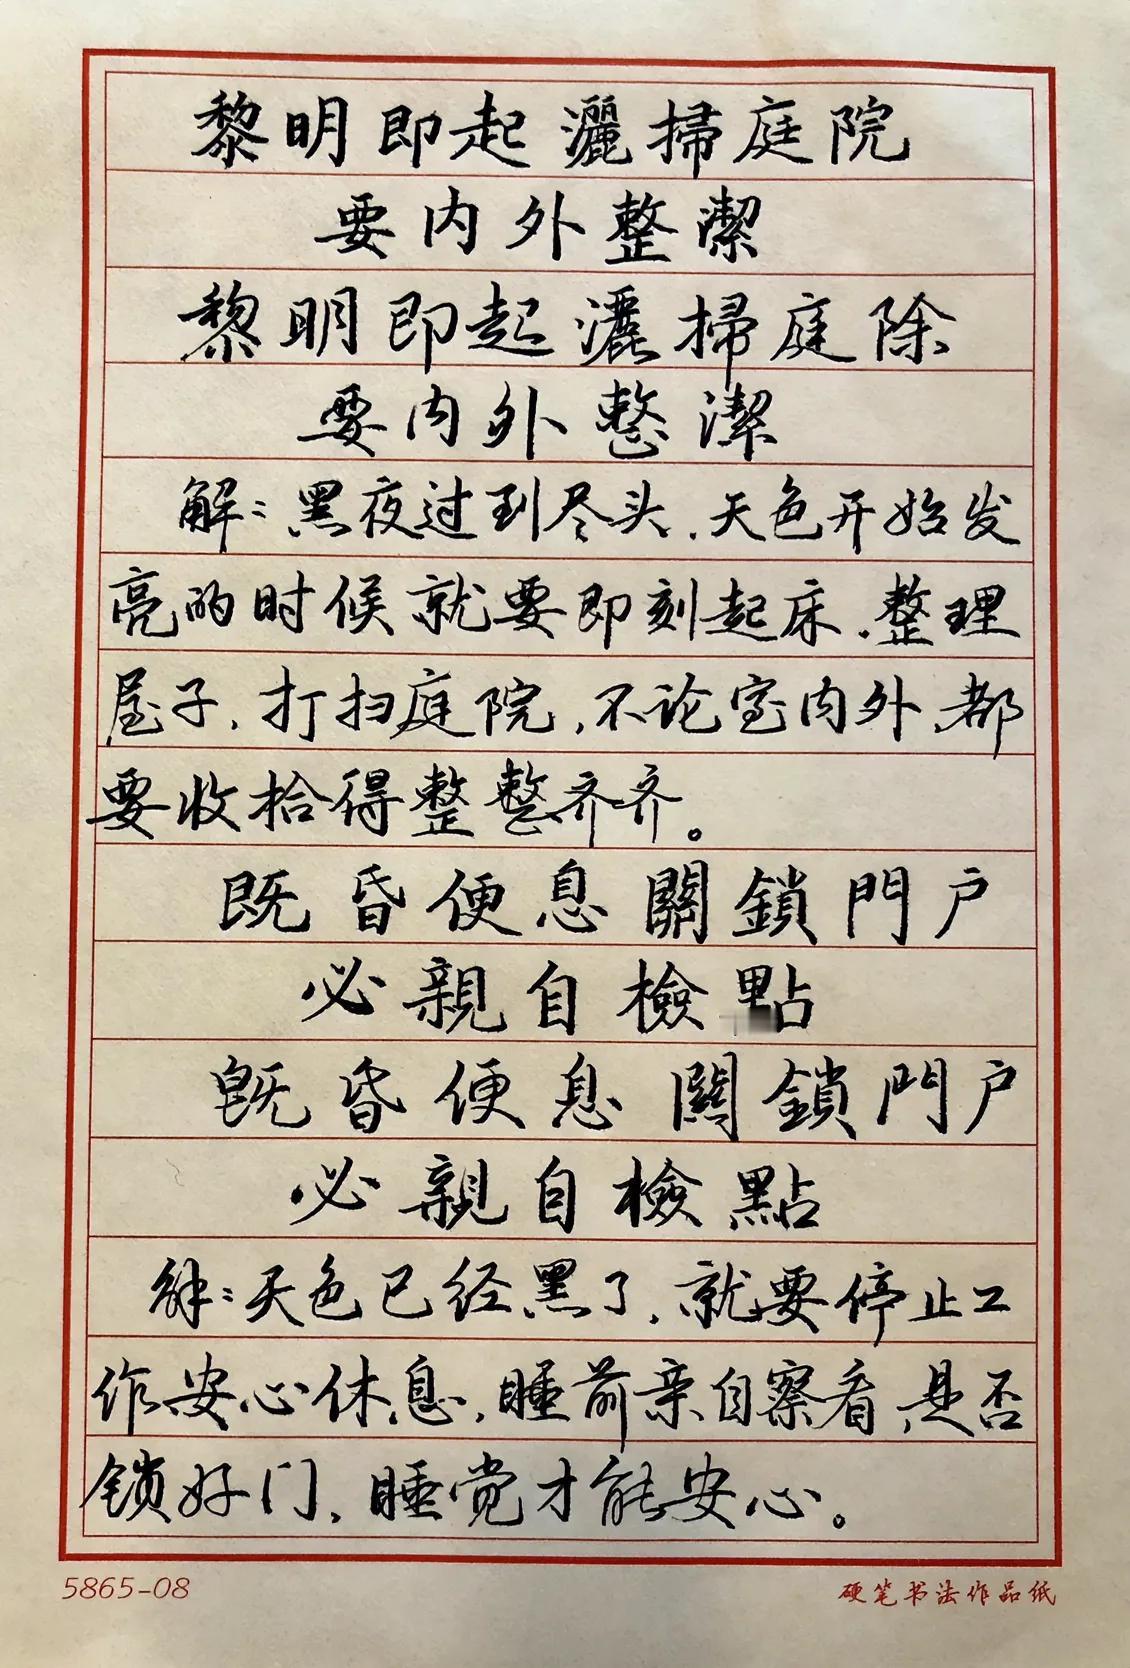 黎明即起灑掃庭院
要内外整潔
黎明即起灑掃庭除
要内外整潔
解：黑夜过到尽头，天色开始发
亮的时候就要即刻起床，整理
屋子，打扫庭院，不论室内外，都
要收拾得整整齐齐。
既昏便息關鎖門户
必親自檢點
既昏便息關鎖門户
必親自檢點
解：天色已经黑了，就要停止工
作安心休息，睡前亲自察看，是否
锁好门，睡觉才能安心。
5865-08
硬笔书法作品纸